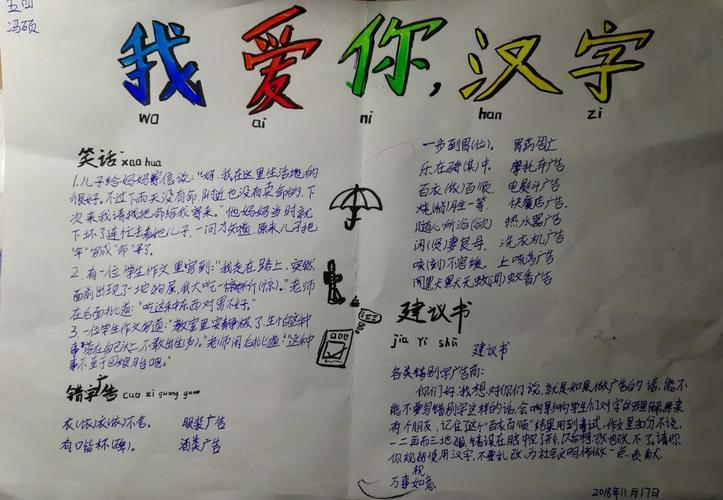 五四
冯硕
我爱你,汉字
wo ai ni han zi
笑话 xao hua
1.儿子给妈妈写信说:"妈,我在这里生活地的
很好,不过下雨天没有命,附近也没有卖命的,下
次来我请你把命给我带来。"他妈妈当时就
下坏了连忙去看她儿子,一问才知道,原来儿子把
"伞"写成"命"来了。
2.有一位学生作文里写到:"我走在路上,突然
面前出现了一坨的屎,我大吃一惊。"老师
在后面批道:"吃这种东西对胃不好。"
3.一位学生作文写道:"教室里安静极了,生怕这种
"老师阅后批道:"这种
事不至于回娘家当吧。"
错字广告 cuo zi guang guao
衣(依)衣(依)不舍。 服装广告
有口皆杯(碑)。 酒类广告
一步到胃(位)。 胃药广告
乐在骑(其)中。 摩托车广告
百衣(依)百顺。 电熨斗广告
烧(稍)胜一筹 快餐店广告
随心所浴(欲) 热水器广告
闲(贤)妻良母。 洗衣机广告
咳(刻)不容缓。 止咳药广告
闻(蚊)蚊香广告
建议书
jia yi shu
建议书
各类错别字广告商:
你们好,我想对你们说,就是如果做广告的话,能不
能不要写错别字这样的话,会响影响学生们对字的理解,原来
有个朋友,记住这个"百衣百顺"结果用到考试,作文里扣分不说,
一二再而三地祖错误在脑中犯了形,以后想改也改不了,请你
们规规使用汉字,不要乱改,为社会文明伟做一点贡献。
祝
万事如意
2018年11月17日